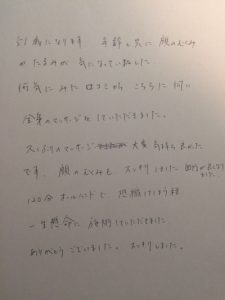 51歳になります 年齢と共に 顔のむくみ
やたるみが 気になっていました。
何気にみた 口コミから こちらに伺い
全身のマッサージを していただきました。
久しぶりのマッサージ 大変 気持ち良かった
です。顔のむくみも スッキリしました
ました。
120分 オールハンドで 恐縮するほど
一生懸命に 施術していただきました
ありがとうございました。スッキリしました。